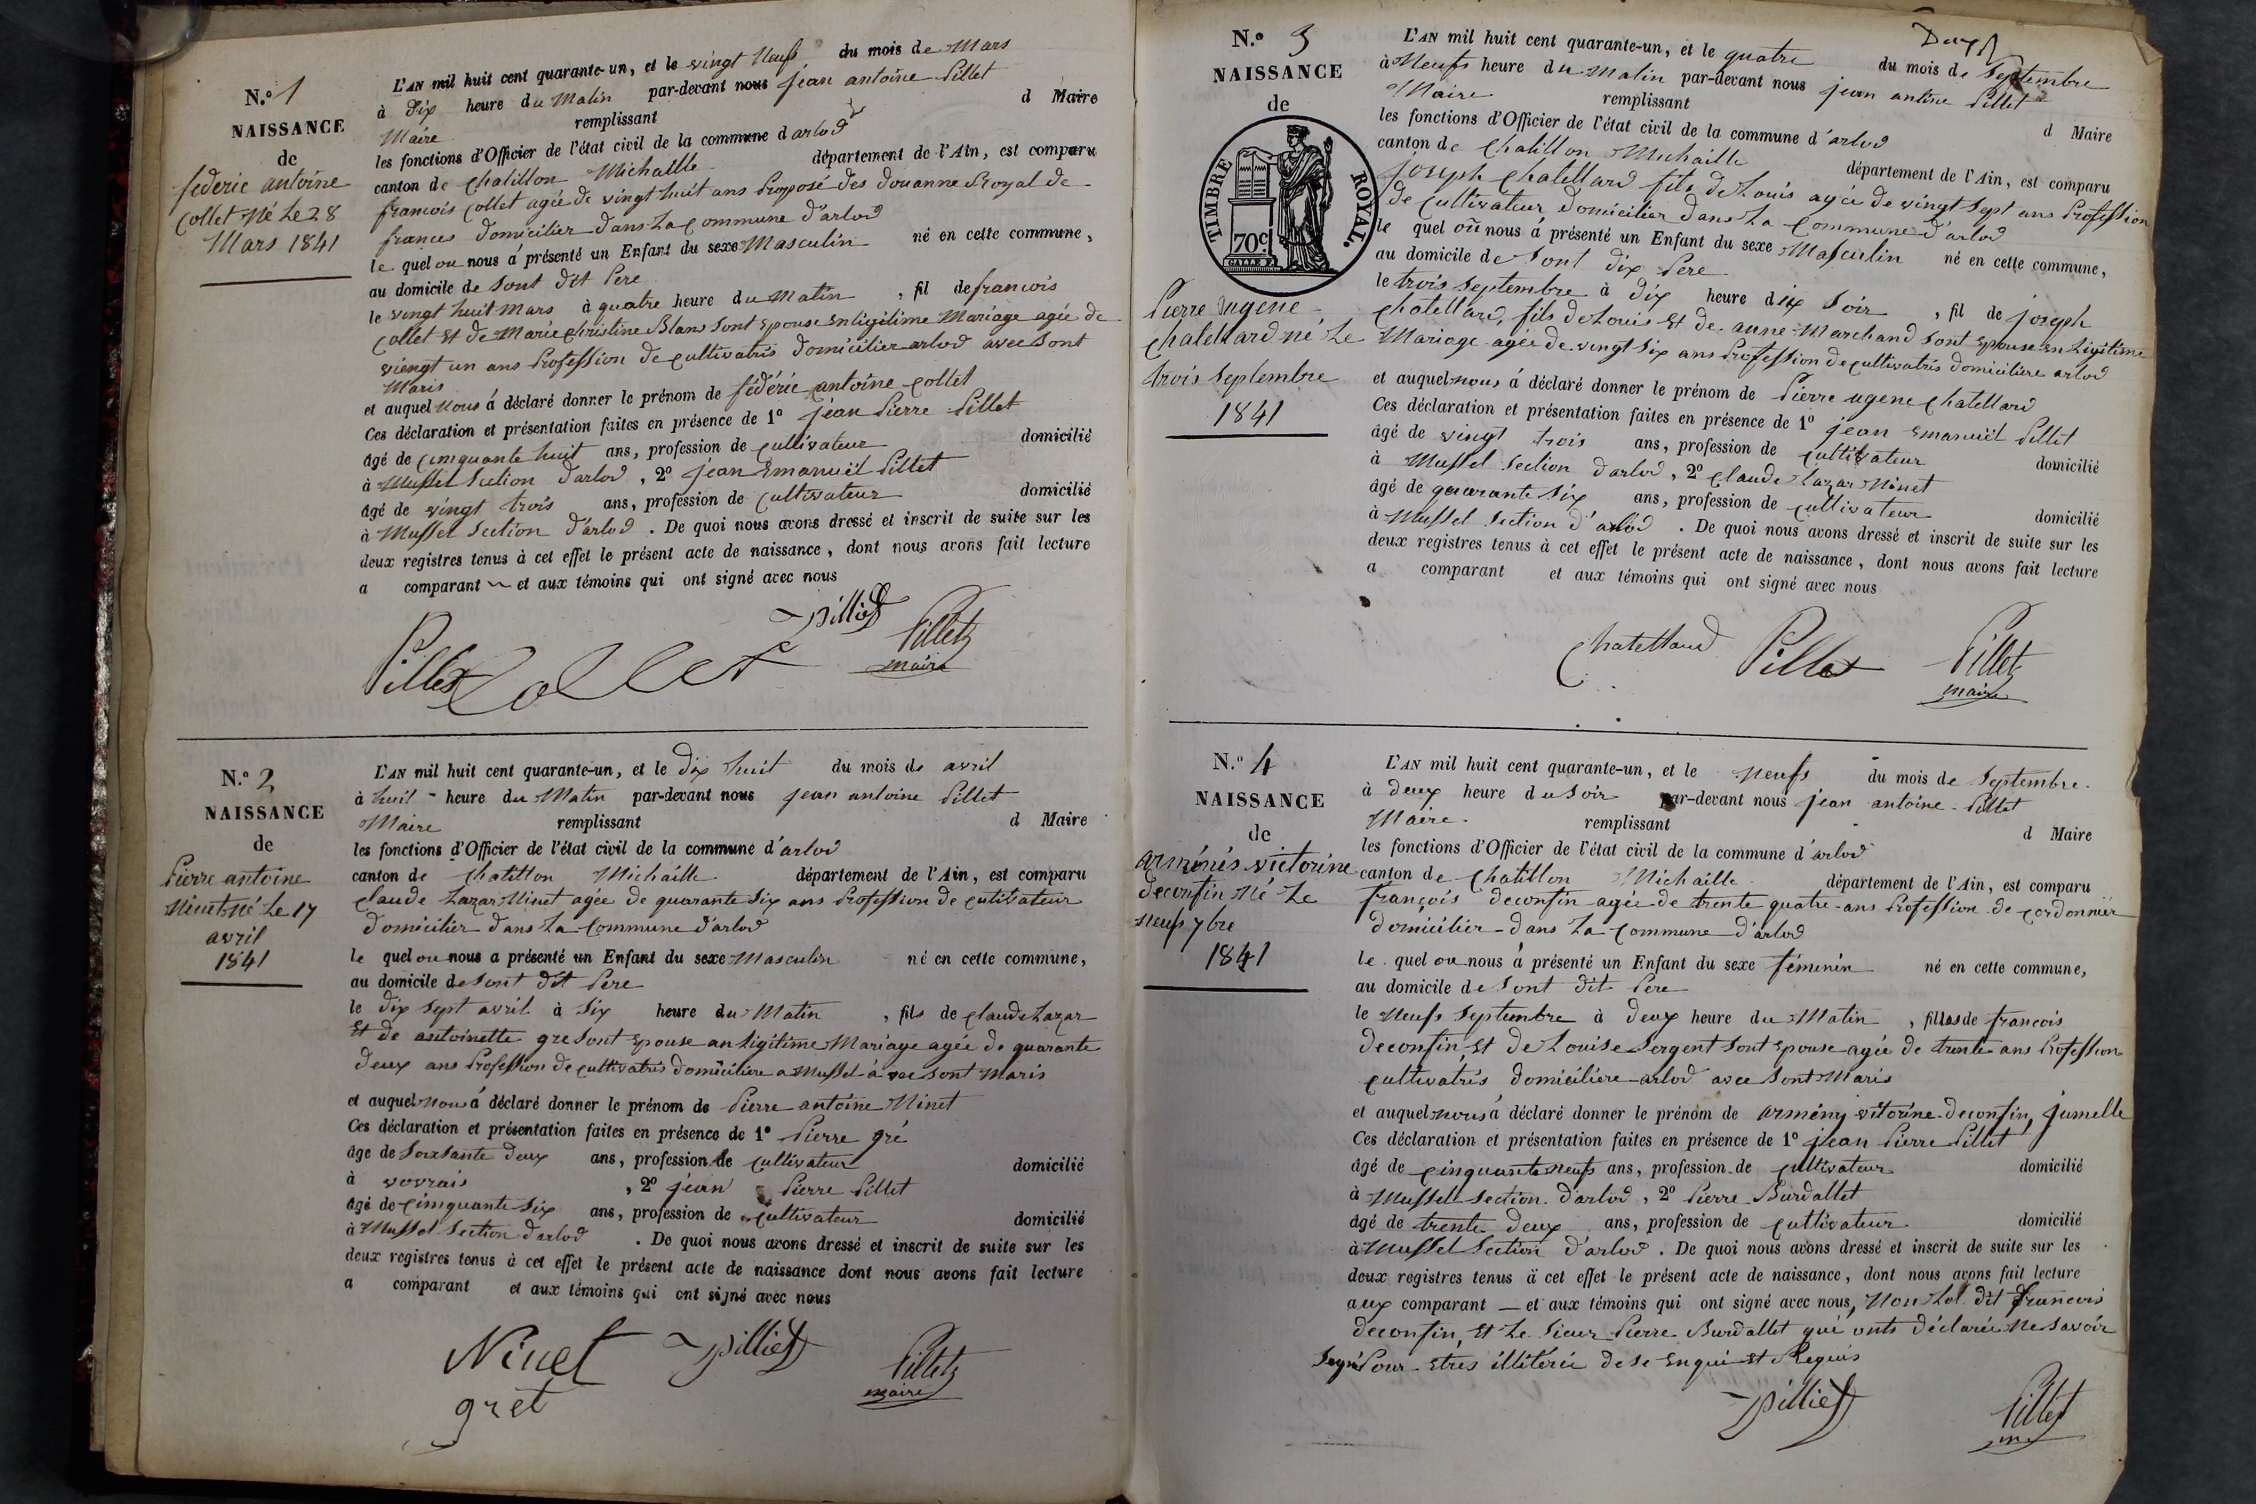 N.º 1
NAISSANCE
de
féderic antoine
Collet Né Le 28
Mars 1841
L'AN mil huit cent quarante-un, et le vingt Neufs du mois de Mars
à dix heure du Matin par-devant nous jean antoine Pillet
Maire remplissant d Maire
les fonctions d'Officier de l'état civil de la commune d'arlod
canton de Chatillon Michaille département de l'Ain, est comparu
francois Collet agée de vingt huit ans Proposé des douanne Proyal de
frances domicilier dans La Commune d'arlod
le quel ou nous á présenté un Enfant du sexe Masculin né en cette commune,
au domicile de sont dit Pere
le vingt huit Mars à quatre heure du Matin, fil de francois
Collet Et de Marie Christine Blans sont Epouse En Ligitime Mariage agée de
viengt un ans Profession de Cultivatris domicilier arlod avec sont
Maris
et auquel Nous á déclaré donner le prénom de fédéric antoine Collet
Ces déclaration et présentation faites en présence de 1º jean Pierre Pillet
âgé de Cinquante huit ans, profession de Cultivateur domicilié
à Mussel Section d'arlod, 2º jean Emanuël Pillet
âgé de vingt trois ans, profession de Cultivateur domicilié
à Mussel Section d'arlod. De quoi nous avons dressé et inscrit de suite sur les
deux registres tenus à cet effet le présent acte de naissance, dont nous avons fait lecture
a comparant et aux témoins qui ont signé avec nous
Pilliet
Pillet Collet Pillet
maire
N.º 2
NAISSANCE
de
Pierre antoine
Ninet Né Le 17
avril
1841
L'AN mil huit cent quarante-un, et le dix huit du mois de avril
à huit heure du Matin par-devant nous jean antoine Pillet
Maire remplissant d Maire
les fonctions d'Officier de l'état civil de la commune d'arlod
canton de Chatillon Michaille département de l'Ain, est comparu
Claude Lazar Ninet agée de quarante Six ans Profession de Cultivateur
domicilier dans La Commune d'arlod
le quel ou nous a présenté un Enfant du sexe Masculin né en cette commune,
au domicile de sont dit Pere
le dix sept avril à Six heure du Matin, fils de Claude Lazar
Et de antoinette gre sont Epouse an Ligitime Mariage agée de quarante
deux ans Profession de Cultivatris domiciliere a Mussel á vec sont Maris
et auquel Nous á déclaré donner le prénom de Pierre antoine Ninet
Ces déclaration et présentation faites en présence de 1º Pierre gré
âge de Soixsante deux ans, profession de Cultivateur domicilié
à vovrais, 2º jean Pierre Pillet
âgé de Cinquante Six ans, profession de Cultivateur domicilié
à Mussel Section d'arlod. De quoi nous avons dressé et inscrit de suite sur les
deux registres tenus à cet effet le présent acte de naissance dont nous avons fait lecture
a comparant et aux témoins qui ont signé avec nous
Ninet Pilliet Pillet
maire
grét
Deux
N.º 3
NAISSANCE
de
TIMBRE ROYAL.
70c.
Pierre Ugene
Chatellard né Le
trois Septembre
1841
L'AN mil huit cent quarante-un, et le quatre du mois de Septembre
à Neufs heure du Matin par-devant nous jean antine Pillet
Maire remplissant d Maire
les fonctions d'Officier de l'état civil de la commune d'arlod
canton de Chatillon Michaille département de l'Ain, est comparu
joseph Chatellard fils de Louis agée de vingt Sept ans Profession
de Cultivateur domicilier dans La Commune d'arlod
le quel où nous á présenté un Enfant du sexe Masculin né en cette commune,
au domicile de sont dix Pere
le trois Septembre à dix heure dix Soir, fil de joseph
Chatellard, fils de Louis Et de anne Marchand sont Epouse En Ligitime
Mariage agée de vingt Six ans Profession de Cultivatris domiciliére arlod
et auquel nous á déclaré donner le prénom de Pierre ugene Chatellard
Ces déclaration et présentation faites en présence de 1º jean Emanuël Pillet
âgé de vingt trois ans, profession de Cultivateur domicilié
à Mussel Section d'arlod, 2º Claude Lazar Ninet
âgé de quarante Six ans, profession de Cultivateur domicilié
à Mussel Section d'arlod. De quoi nous avons dressé et inscrit de suite sur les
deux registres tenus à cet effet le présent acte de naissance, dont nous avons fait lecture
a comparant et aux témoins qui ont signé avec nous
Chatellard Pillet Pillet
maire
N.º 4
NAISSANCE
de
arménis victorine
deconfin Né Le
Neufs 7bre
1841
L'AN mil huit cent quarante-un, et le Neufs du mois de Septembre
à deux heure du Soir par-devant nous jean antoine Pillet
Maire remplissant d Maire
les fonctions d'Officier de l'état civil de la commune d'arlod
canton de Chatillon Michaille département de l'Ain, est comparu
françois deconfin agée de trente quatre ans Profession de Cordonnier
domicilier dans La Commune d'arlod
le quel ou nous á présenté un Enfant du sexe féminin né en cette commune,
au domicile de sont dit Pere
le Neufs Septembre à deux heure du Matin, filles de francois
deconfin, Et de Louise Sergent sont Epouse agée de trente ans Profession
Cultivatris domiciliere arlod avec sont Maris
et auquel nous á déclaré donner le prénom de armény vitorine deconfin, jumelle
Ces déclaration et présentation faites en présence de 1º jean Pierre Pillet
âgé de Cinquante neufs ans, profession de Cultivateur domicilié
à Mussel Section d'arlod, 2º Pierre Burdallet
âgé de trente deux ans, profession de Cultivateur domicilié
à Mussel Section d'arlod. De quoi nous avons dressé et inscrit de suite sur les
deux registres tenus à cet effet le présent acte de naissance, dont nous avons fait lecture
aux comparant et aux témoins qui ont signé avec nous, Non Le dit francois
deconfin, Et Le Sieur Pierre Burdallet qui onts déclarée Ne Savoir
Signé Pour Etres illitérée de se Enqui Et Requis
Pilliet Pillet